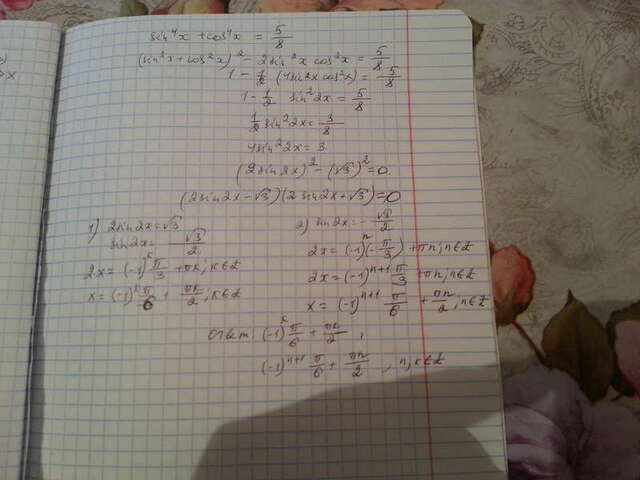 sin⁴x + cos⁴x = 5/8
(sin²x + cos²x)² - 2sin²x cos²x = 5/8
1 - 1/2 (4sin²x cos²x) = 5/8
1 - 1/2 sin²2x = 5/8
1/2 sin²2x = 3/8
4sin²2x = 3
(2sin2x)² - (√3)² = 0.
(2sin2x - √3)(2sin2x + √3) = 0
1) 2sin2x = √3
sin2x = √3/2
2x = (-1)ᵏ π/3 + πk, k∈Z
x = (-1)ᵏ π/6 + πk/2, k∈Z
2) sin2x = - √3/2
2x = (-1)ⁿ(-π/3) + πn, n∈Z
2x = (-1)ⁿ⁺¹ π/3 + πn, n∈Z
x = (-1)ⁿ⁺¹ π/6 + πn/2, n∈Z
Ответ: (-1)ᵏ π/6 + πk/2,
(-1)ⁿ⁺¹ π/6 + πn/2, n, k∈Z